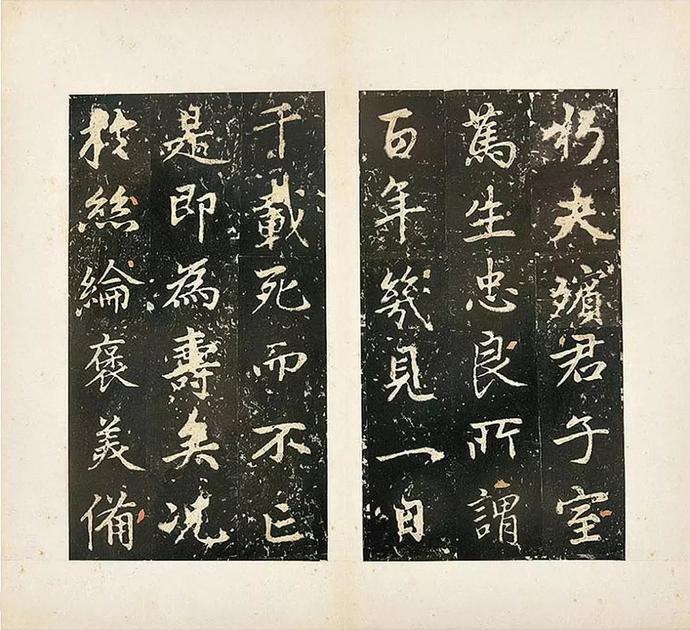 朽夫殯君子室
蔿生忠良所謂
百年幾見一日
千載死而不亡
是即為壽矣況
於絲綸褒美備